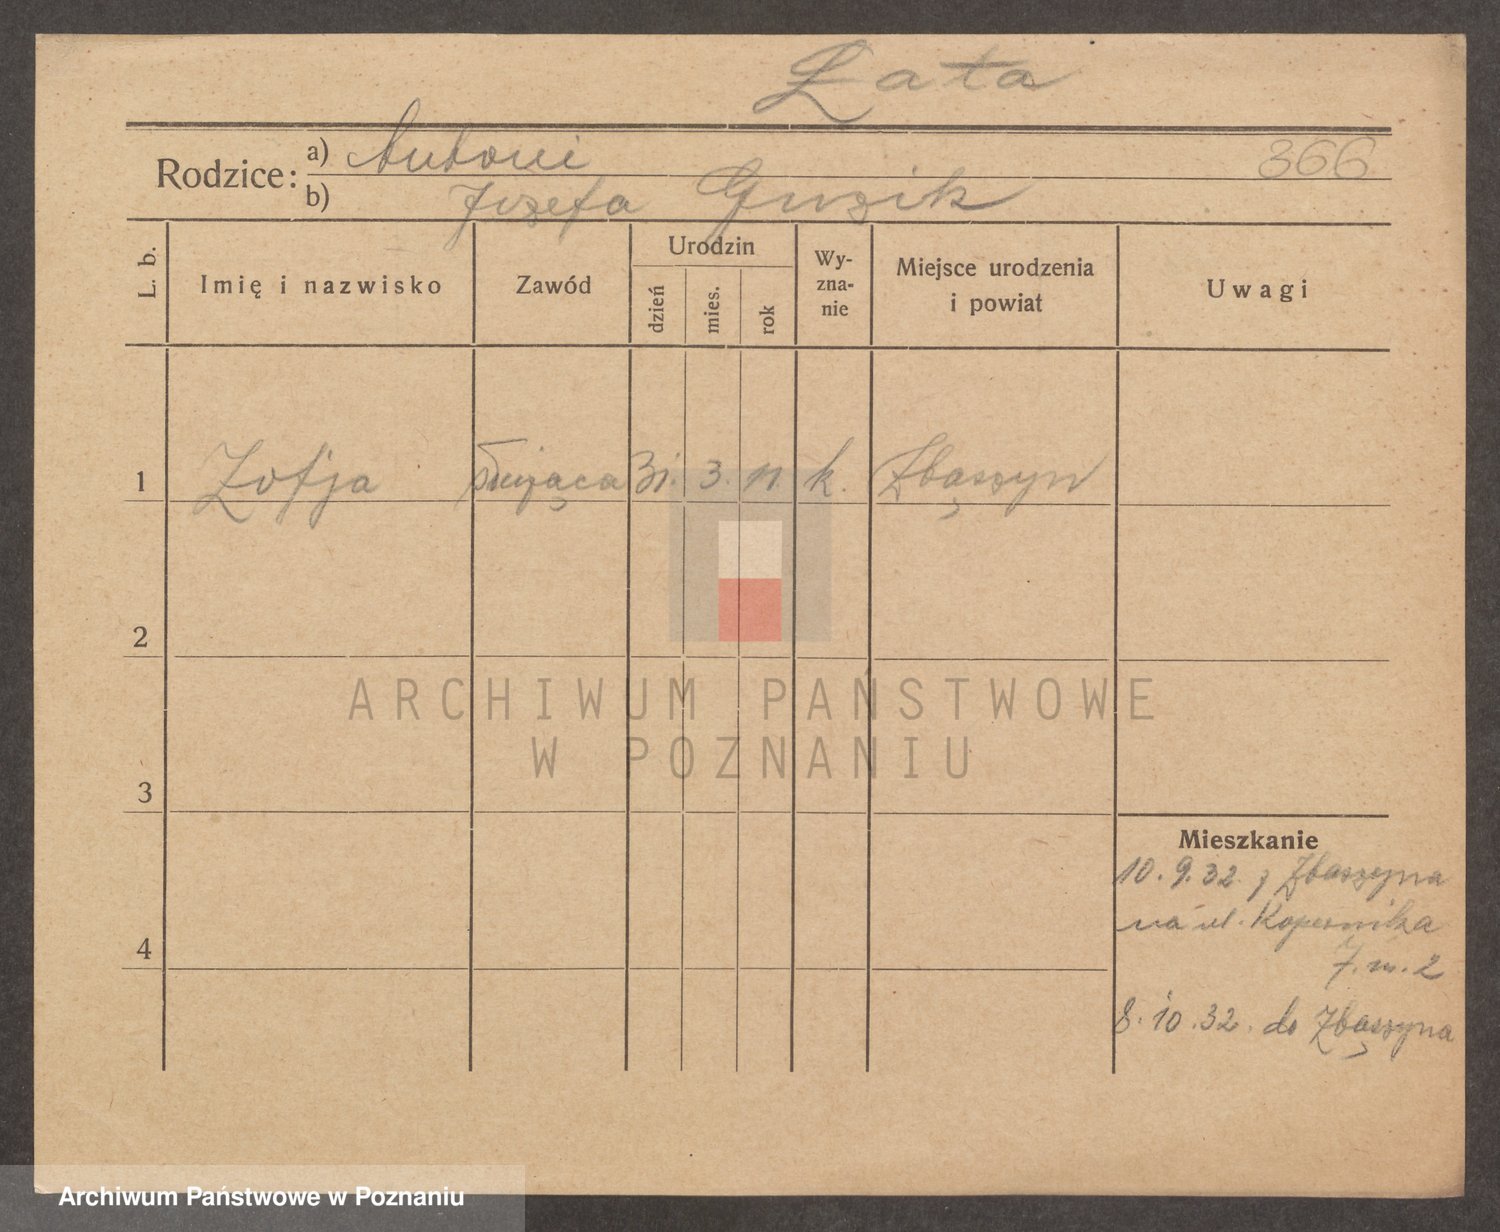 Łata
Rodzice: a) Antoni 366
b) Józefa Guzik
L. b. Imię i nazwisko Zawód Urodzin dzień mies. rok Wy-zna-nie Miejsce urodzenia i powiat Uwagi
1 Zofja służąca 31. 3. 11. k. Zbąszyn
2
3
4
Mieszkanie
10.9.32 z Zbąszyna
na ul. Kopernika
7. m. 2
8.10.32. do Zbąszyna
ARCHIWUM PAŃSTWOWE
W POZNANIU
Archiwum Państwowe w Poznaniu